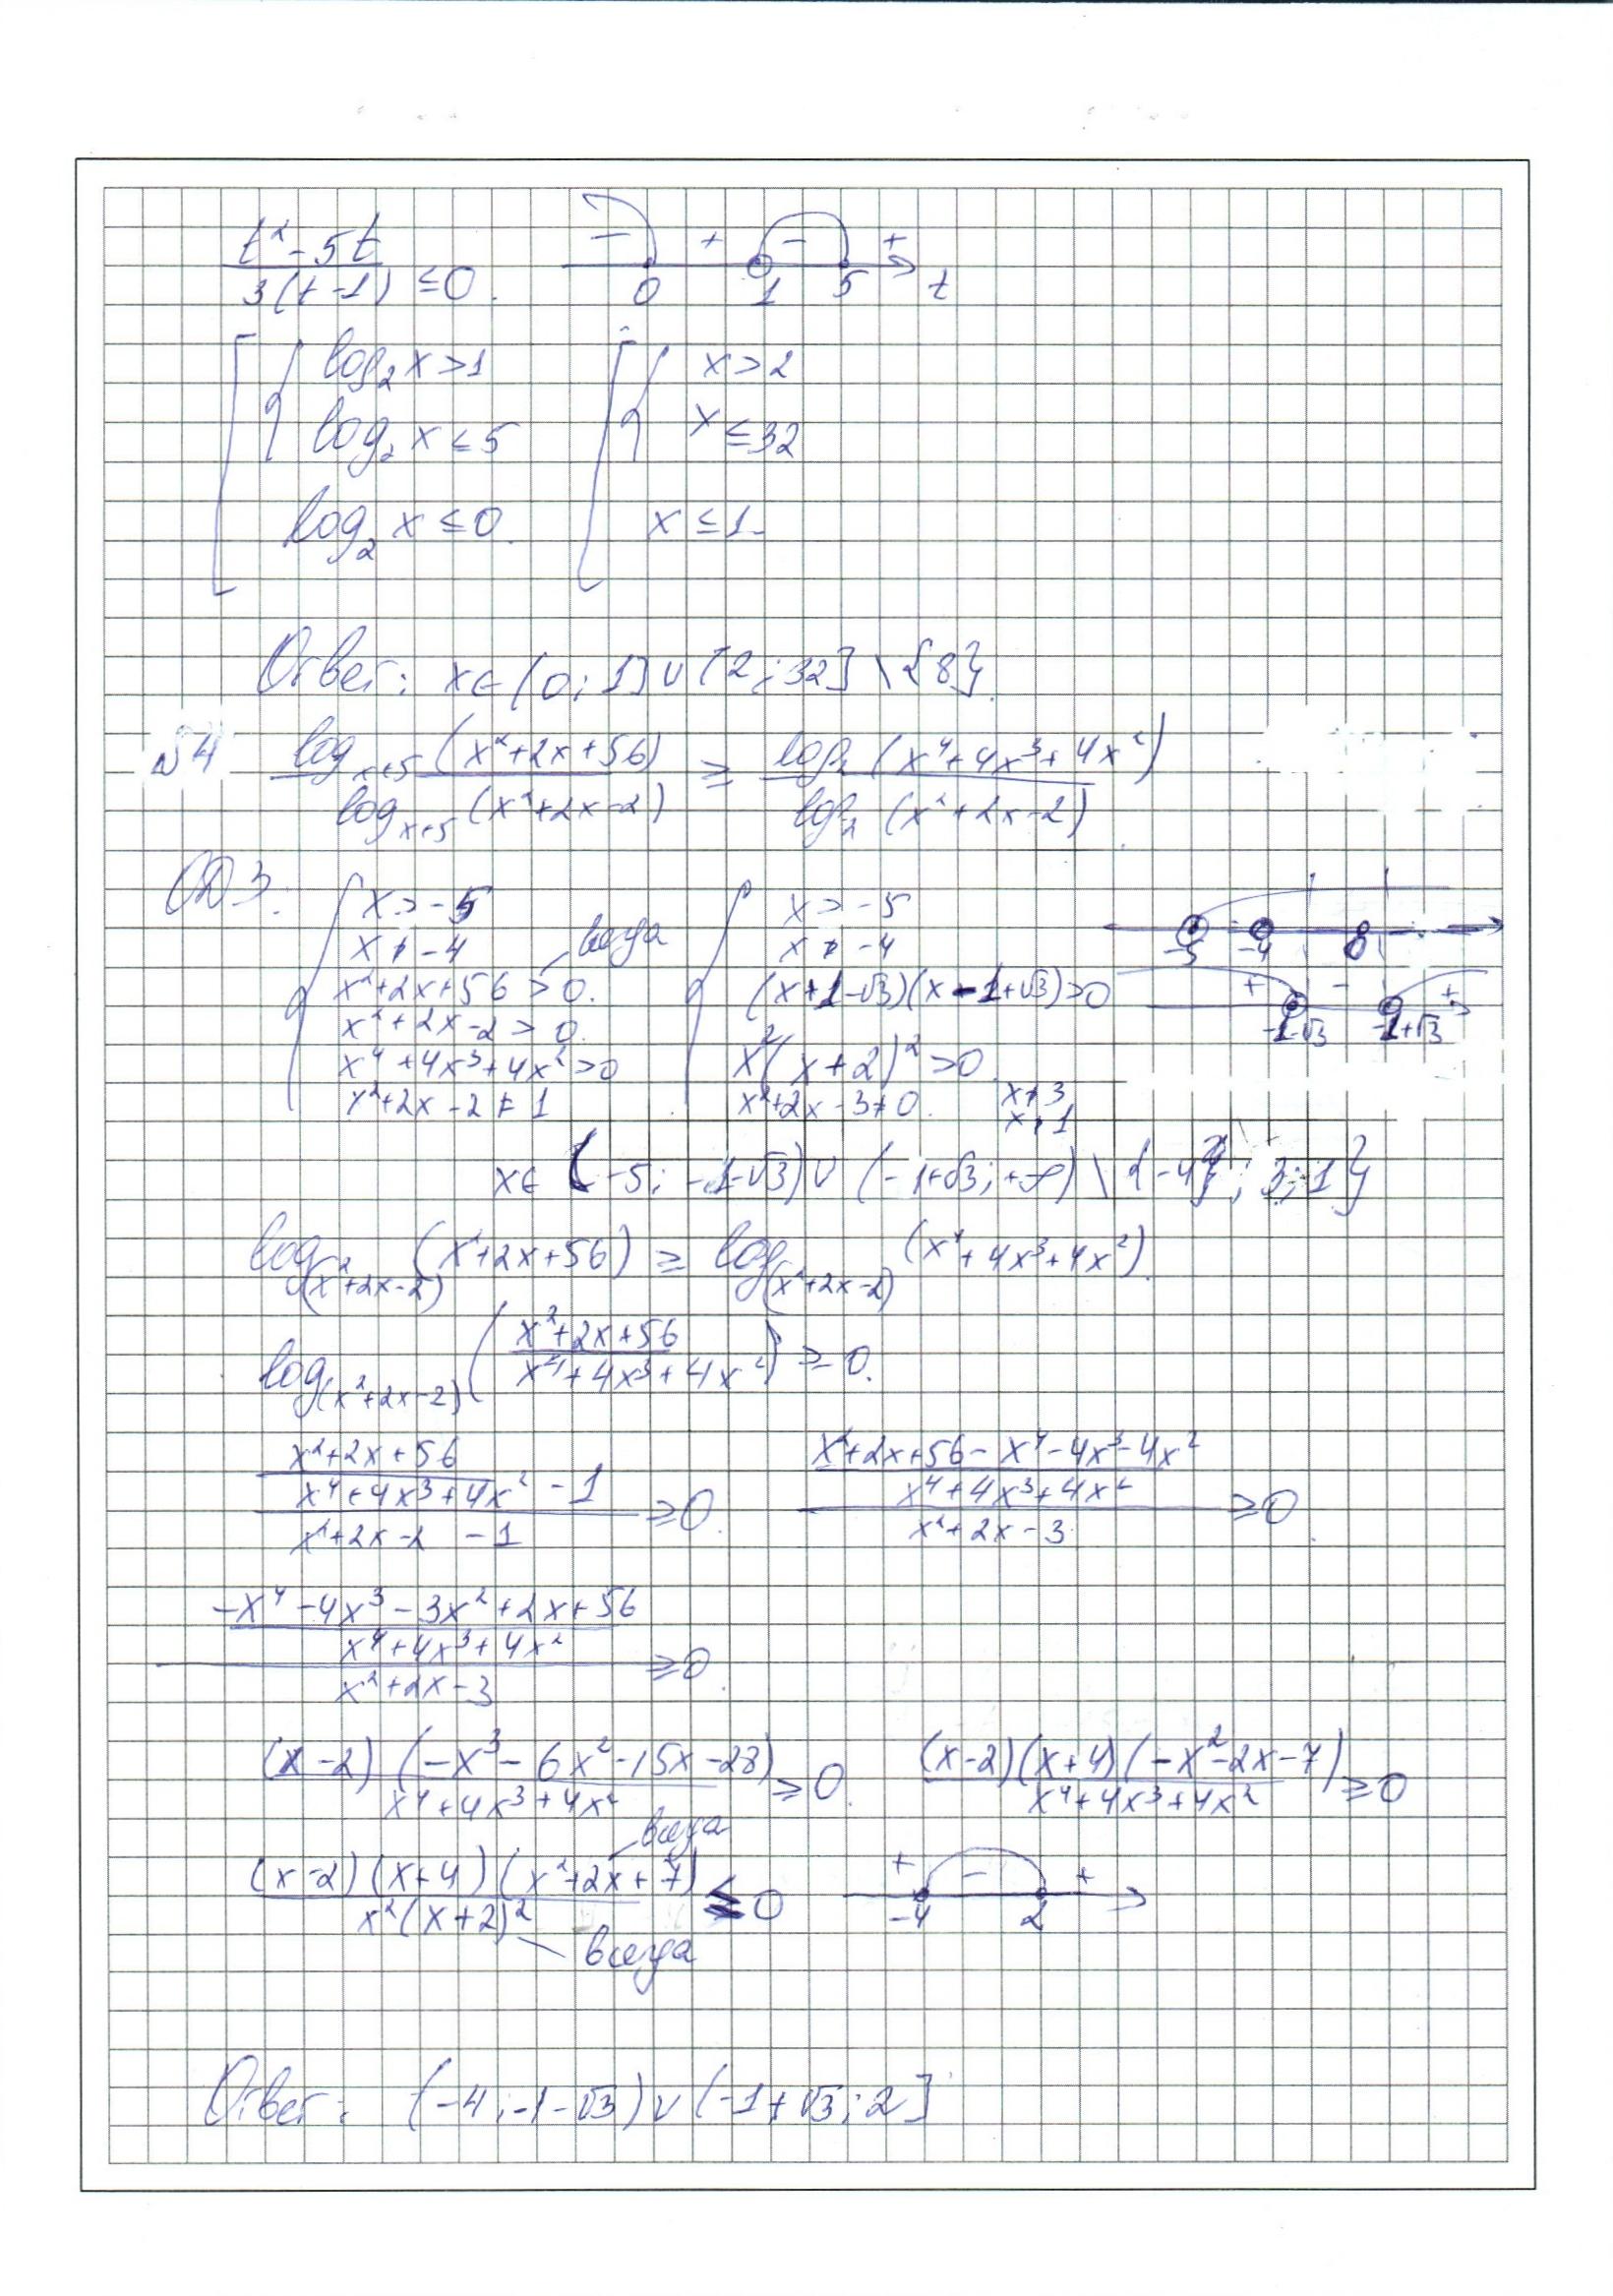 (t² - 5t)/(3(t-1)) ≤ 0. - + - + 0 1 5 t
log₂ x > 1 x > 2
log₂ x ≤ 5 x ≤ 32
log₂ x ≤ 0. x ≤ 1.
Ответ: x ∈ (0; 1] ∪ (2; 32] \ {8}.
№4 (log_{x+5} (x²+2x+56))/(log_{x+5} (x²+2x-2)) ≥ (log₂ (x⁴+4x³+4x²))/(log₂ (x²+2x-2)).
ОДЗ:
x > -5 x > -5 -5 -4
x ≠ -4 всегда x ≠ -4
x²+2x+56 > 0. (x+1-√3)(x-1+√3) > 0 + - +
x²+2x-2 > 0. -1-√3 -1+√3
x⁴+4x³+4x² > 0 x²(x+2)² > 0
x²+2x-2 ≠ 1 x²+2x-3 ≠ 0. x ≠ 3 x ≠ 1
x ∈ (-5; -1-√3) ∪ (-1+√3; +∞) \ {-4; 3; 1}
log_{(x²+2x-2)} (x²+2x+56) ≥ log_{(x²+2x-2)} (x⁴+4x³+4x²).
log_{(x²+2x-2)} ((x²+2x+56)/(x⁴+4x³+4x²)) ≥ 0.
((x²+2x+56)/(x⁴+4x³+4x²) - 1)/(x²+2x-2 - 1) ≥ 0. ((x²+2x+56-x⁴-4x³-4x²)/(x⁴+4x³+4x²))/(x²+2x-3) ≥ 0.
((-x⁴-4x³-3x²+2x+56)/(x⁴+4x³+4x²))/(x²+2x-3) ≥ 0.
((x-2)(-x³-6x²-15x-28))/(x⁴+4x³+4x²) ≥ 0. ((x-2)(x+4)(-x²-2x-7))/(x⁴+4x³+4x²) ≥ 0
всегда
((x-2)(x+4)(x²+2x+7))/(x²(x+2)²) ≤ 0 + - + -4 2
всегда
Ответ: (-4; -1-√3) ∪ (-1+√3; 2]